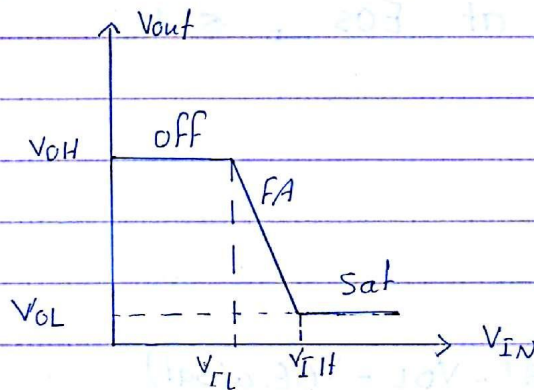 Vout
VOH
off
FA
Sat
VOL
VIN
VIL
VIH